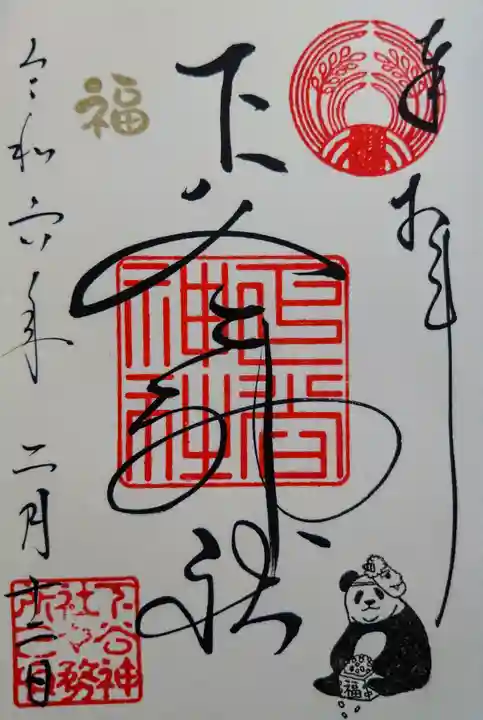 奉拝
下谷神社
下谷神社
福
令和六年二月十二日
下谷神社社務所印
福